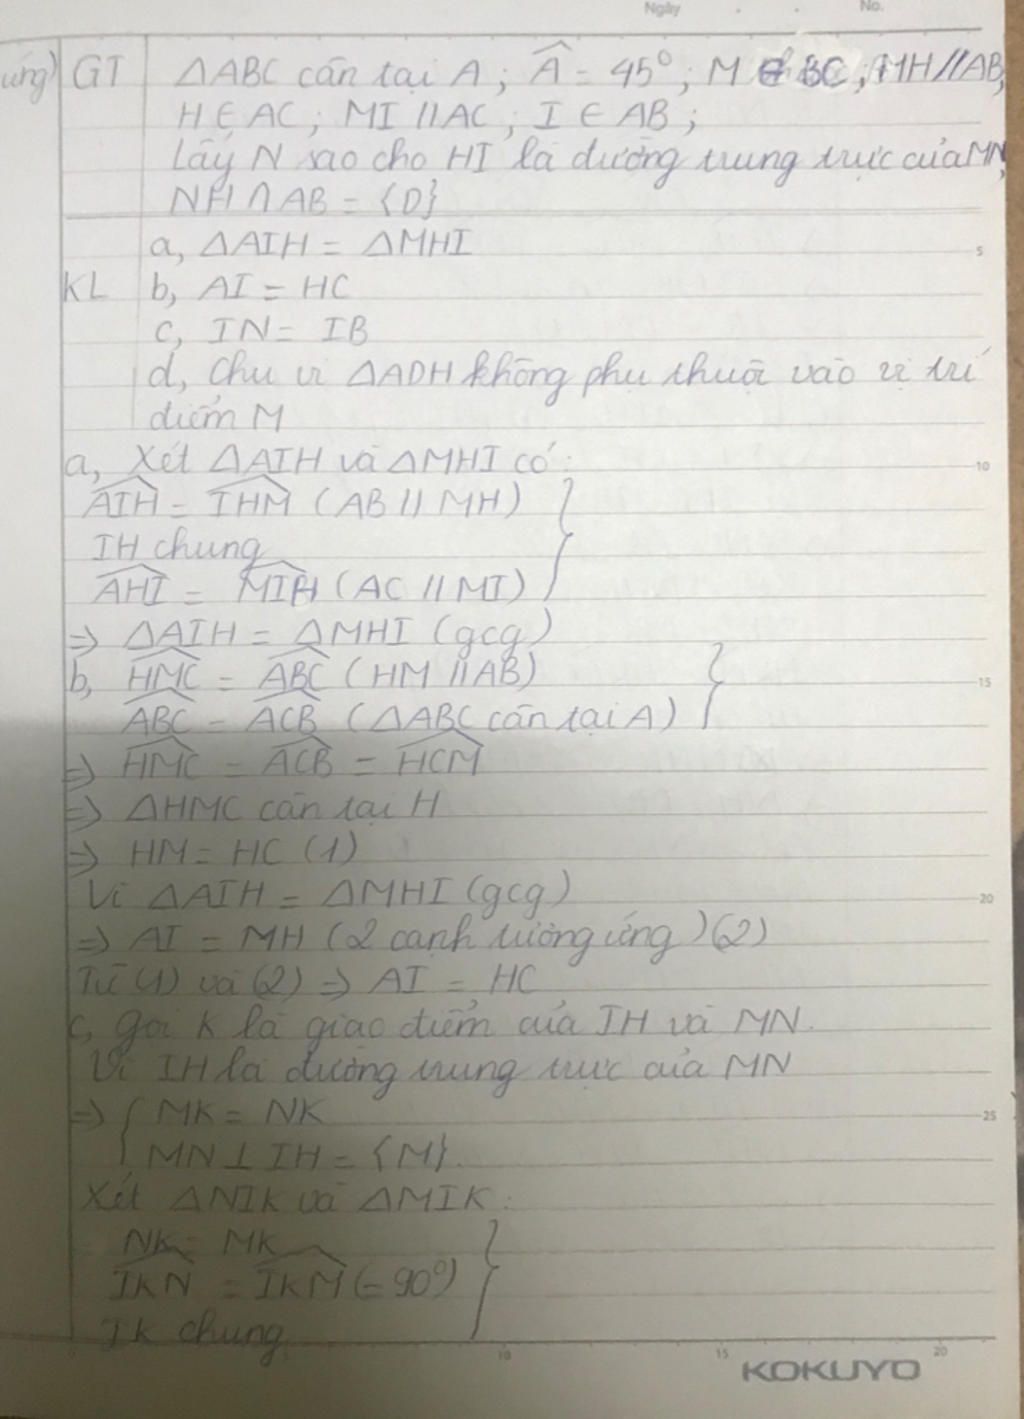 Ngày . . No.
ứng) GT ΔABC cân tại A; Â = 45°; M ∈ BC; MH//AB,
H ∈ AC; MI // AC; I ∈ AB;
Lấy N sao cho HI là đường trung trực của MN,
NH ∩ AB = {D}
a, ΔAIH = ΔMHI
KL b, AI = HC
c, IN = IB
d, Chu vi ΔADH không phụ thuộc vào vị trí
điểm M
a, Xét ΔAIH và ΔMHI có:
AIH = IHM (AB // MH)
IH chung
AHI = MIH (AC // MI)
=> ΔAIH = ΔMHI (gcg)
b, HMC = ABC (HM // AB)
ABC = ACB (ΔABC cân tại A)
=> HMC = ACB = HCM
=> ΔHMC cân tại H
=> HM = HC (1)
Vì ΔAIH = ΔMHI (gcg)
=> AI = MH (2 cạnh tương ứng) (2)
Từ (1) và (2) => AI = HC
c, Gọi K là giao điểm của IH và MN.
Vì IH là đường trung trực của MN
=> { MK = NK
MN ⊥ IH = {M}.
Xét ΔNIK và ΔMIK:
NK = MK
IKN = IKM (= 90°)
IK chung
5
10
15
20
25
0 10 15 20
KOKUYO